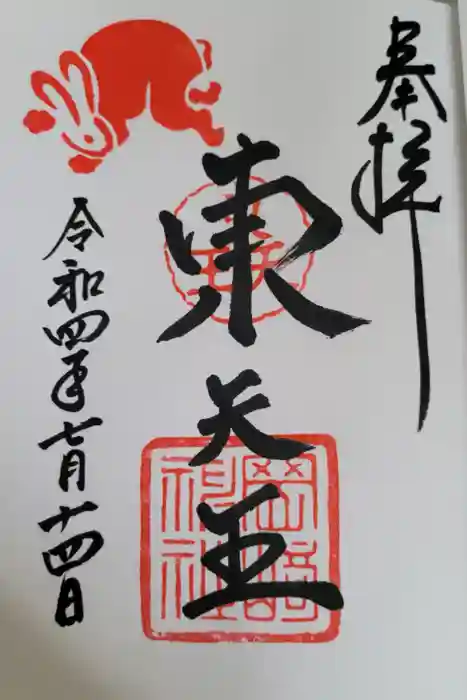 奉拝
東天王
岡﨑神社
令和四年七月十四日